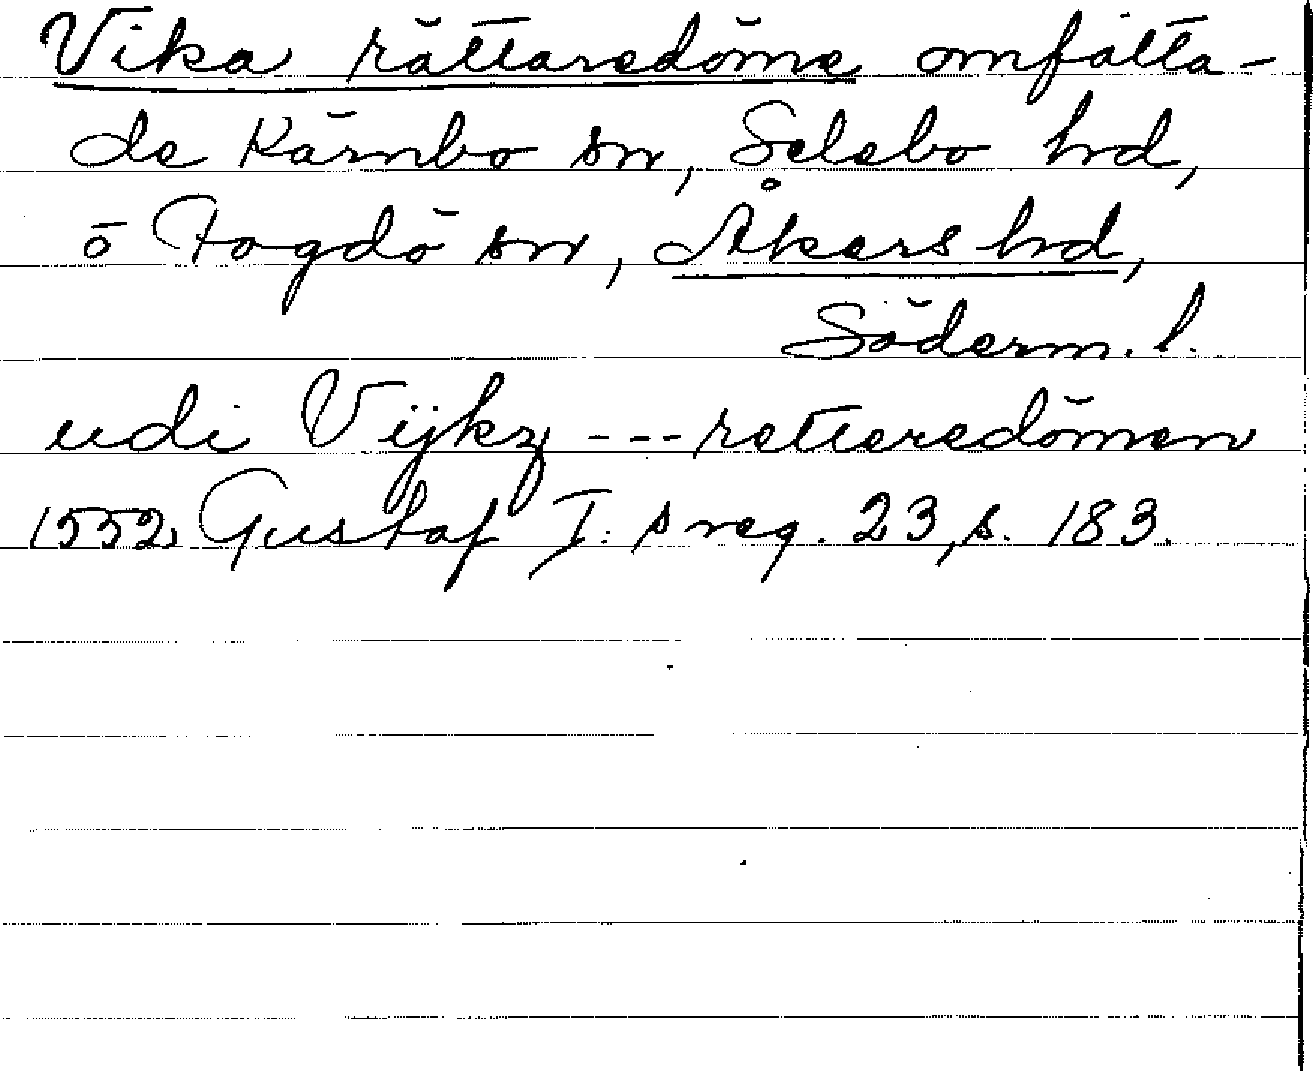 Vika rättaredöme omfatta-
de Kärnbo sn, Selebo hd,
o Fogdö sn, Åkers hd,
Söderm. l.
udi Vijkz --- retteredömen
1552 Gustaf I:s reg. 23, s. 183.